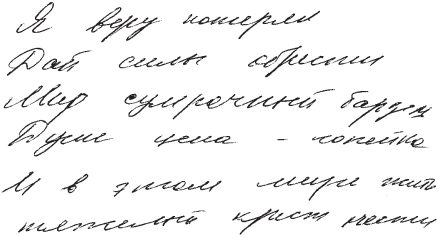 Я веру потерял
Дай силы обрести
Мир сумрачный бардец
Душе цена – копейка
И в этом мире жить
тяжелый крест нести